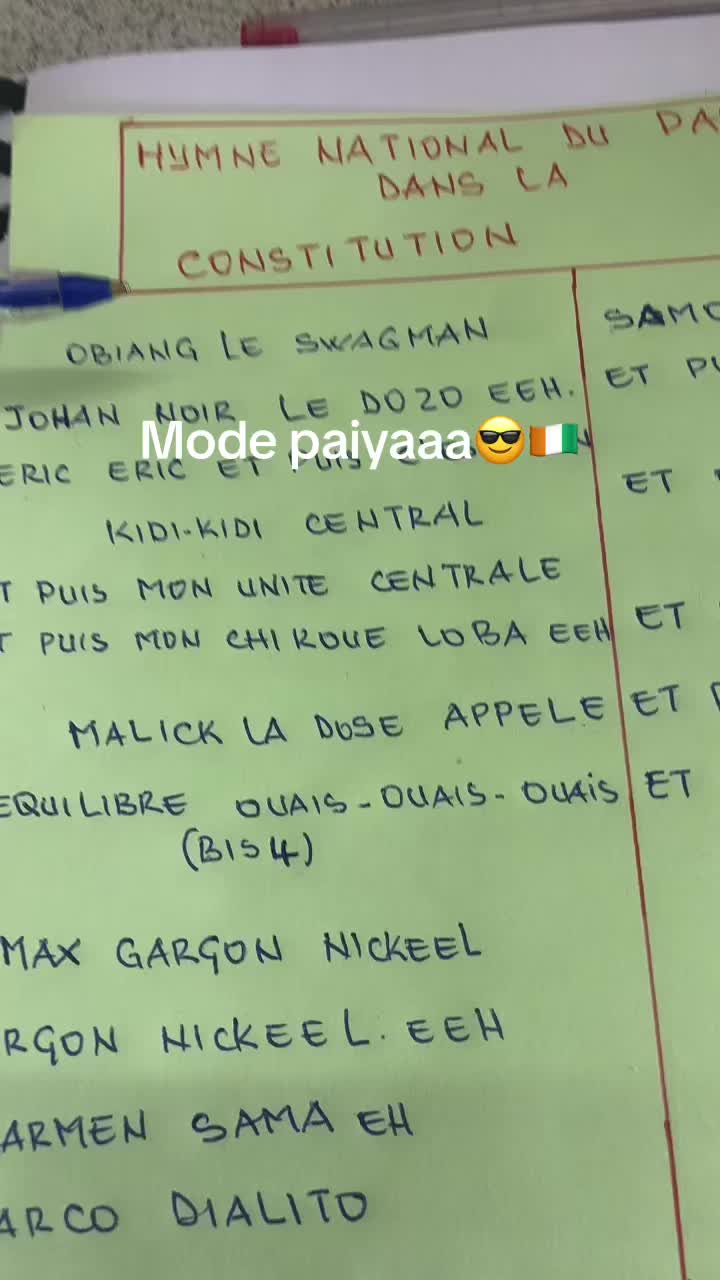 HYMNE NATIONAL DU PA
DANS LA
CONSTITUTION
OBIANG LE SWAGMAN
JOHAN NOIR LE DOZO EEH.
Mode paiyaaa😎🇨🇮
ERIC ERIC ET PUIS
KIDI-KIDI CENTRAL
T PUIS MON UNITE CENTRALE
T PUIS MON CHIKOUE LOBA EEH
MALICK LA DOSE APPELE
EQUILIBRE OUAIS-OUAIS-OUAiS
(BIS 4)
MAX GARÇON NICKEEL
RGON NICKEEL. EEH
ARMEN SAMA EH
ARCO DIALITO
SAMO
ET PU
ET
ET
ET
ET